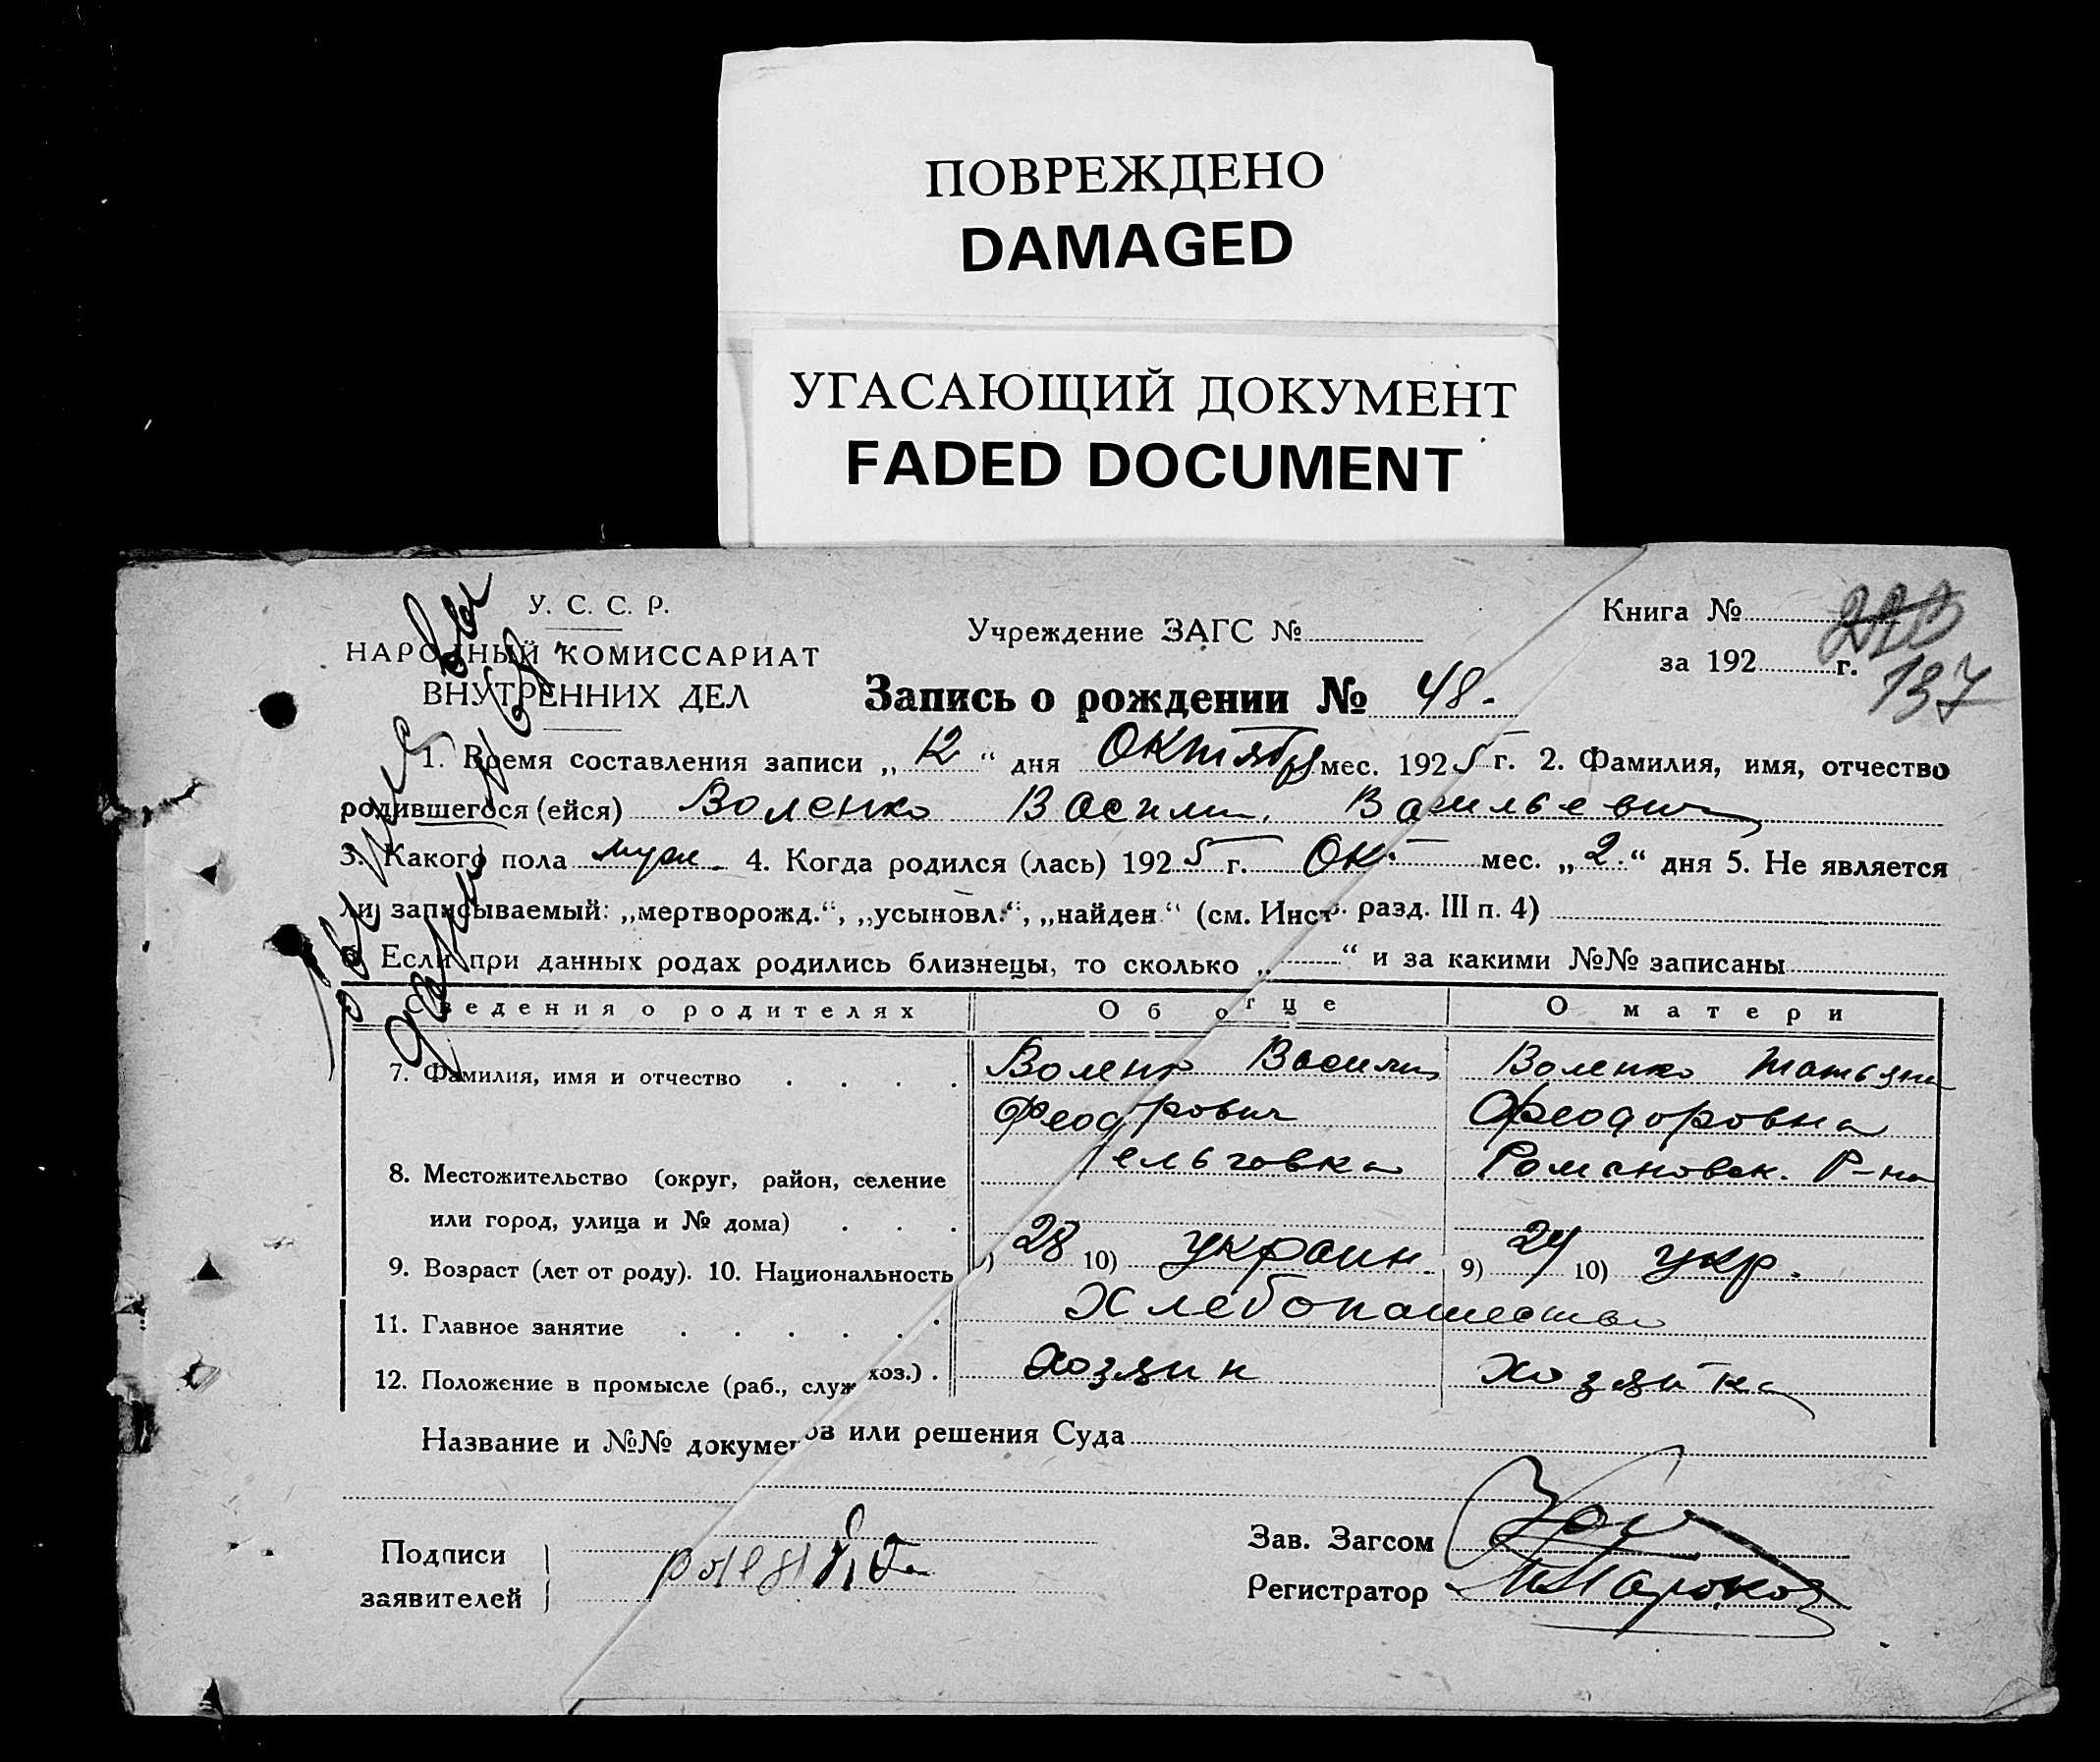 ПОВРЕЖДЕНО
DAMAGED
УГАСАЮЩИЙ ДОКУМЕНТ
FADED DOCUMENT
У. С. С. Р.
НАРОДНЫЙ КОМИССАРИАТ
ВНУТРЕННИХ ДЕЛ
Учреждение ЗАГС №
Книга №
за 192 г.
137
Запись о рождении № 48.
1. Время составления записи „12“ дня Октября мес. 1925 г. 2. Фамилия, имя, отчество
родившегося (ейся) Воленко Васили Васильевич
3. Какого пола муж. 4. Когда родился (лась) 1925 г. Ок. мес. „2.“ дня 5. Не является
ли записываемый: „мертворожд.“, „усыновл.“, „найден.“ (см. Инстр. разд. III п. 4)
6. Если при данных родах родились близнецы, то сколько „ “ и за какими №№ записаны
Сведения о родителях Об отце О матери
7. Фамилия, имя и отчество Воленко Васили Воленко Татьяна
Феодорович Феодоровна
8. Местожительство (округ, район, селение Романовск. Р-на
или город, улица и № дома)
9. Возраст (лет от роду). 10. Национальность 28 10) украин. 9) 24 10) укр.
11. Главное занятие Хлебопашество
12. Положение в промысле (раб., служ хоз.) Хозяин хозяйка
Название и №№ документов или решения Суда
Подписи
заявителей
Зав. Загсом
Регистратор